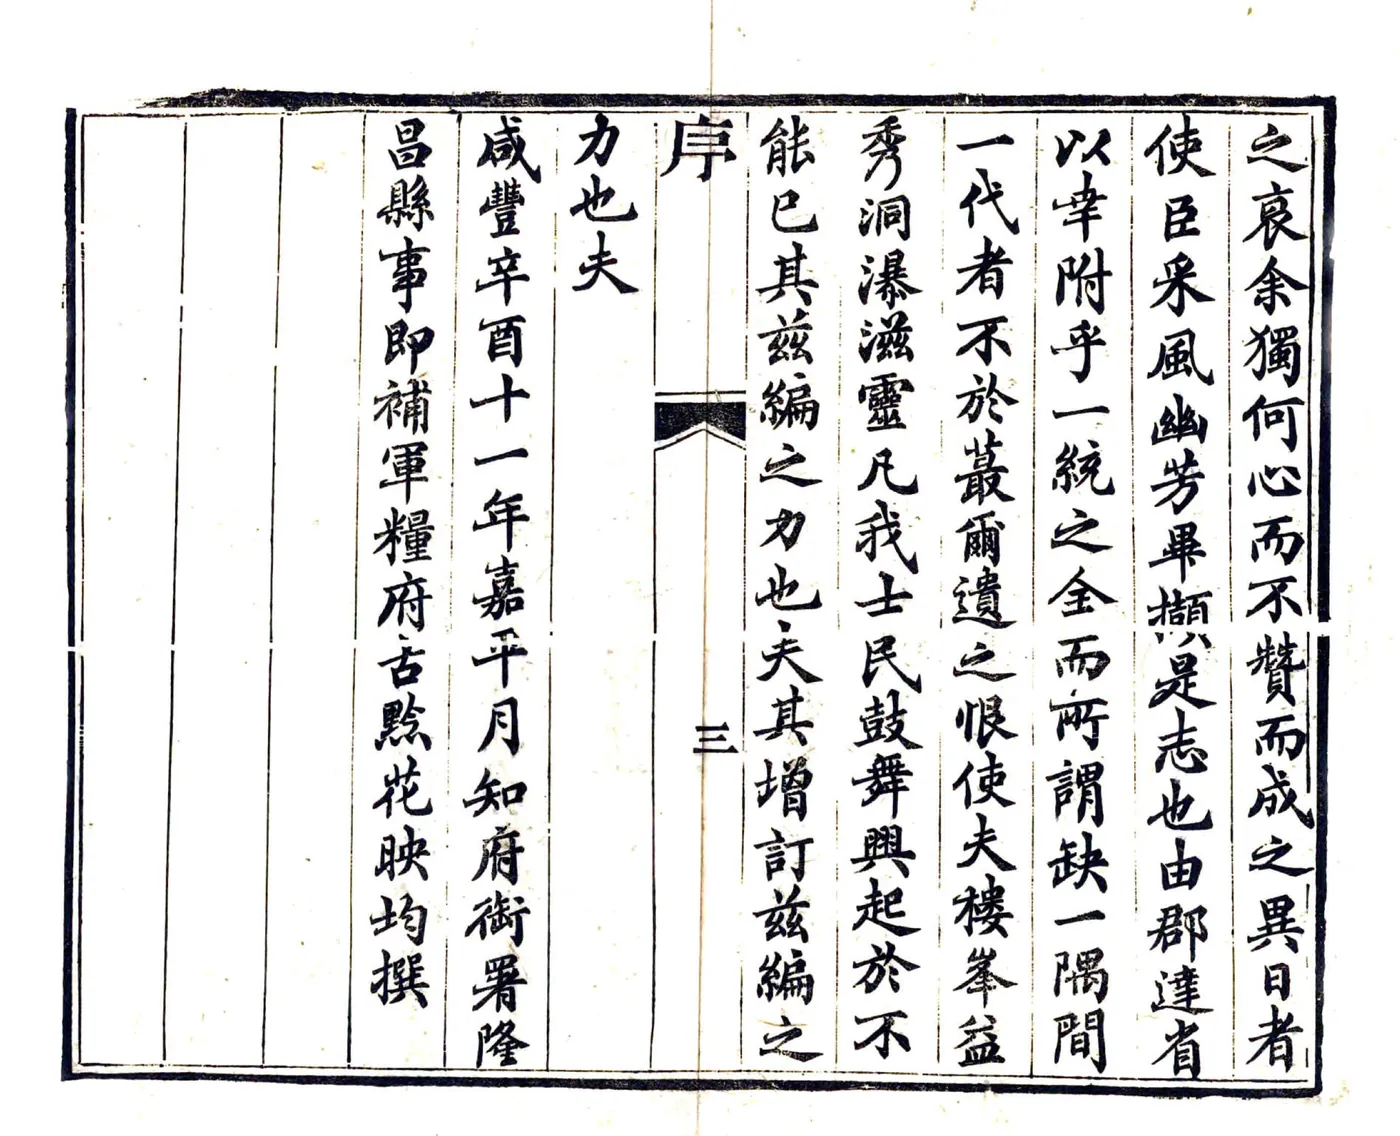 之哀余獨何心而不贊而成之異日者
使臣采風幽芳畢擷是志也由郡達省
以幸附乎一統之全而所謂缺一隅間
一代者不於蕞爾遺之恨使夫樓峯益
秀洞瀑滋靈凡我士民鼓舞興起於不
能已其茲編之力也夫其增訂茲編之
序
三
力也夫
咸豐辛酉十一年嘉平月知府銜署隆
昌縣事即補軍糧府古黔花映均撰